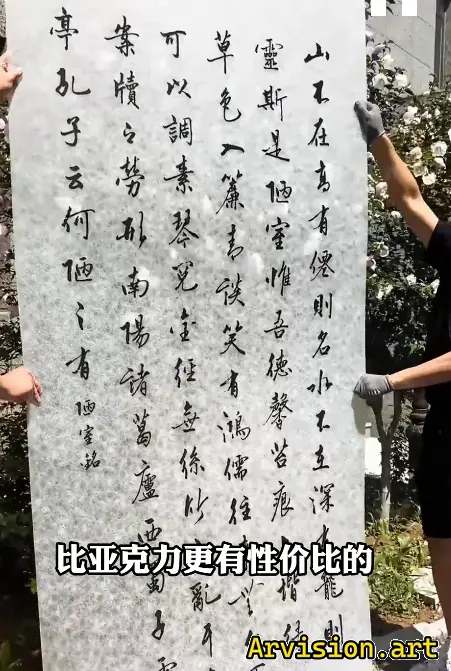 山不在高有僊則名水不在深有龍則
靈斯是陋室惟吾德馨苔痕上階緑
草色入簾青談笑有鴻儒往
可以調素琴閱金經無絲竹之亂耳
案牘之勞形南陽諸葛廬西蜀子雲
亭孔子云何陋之有
陋室銘
比亚克力更有性价比的
Arvision.art